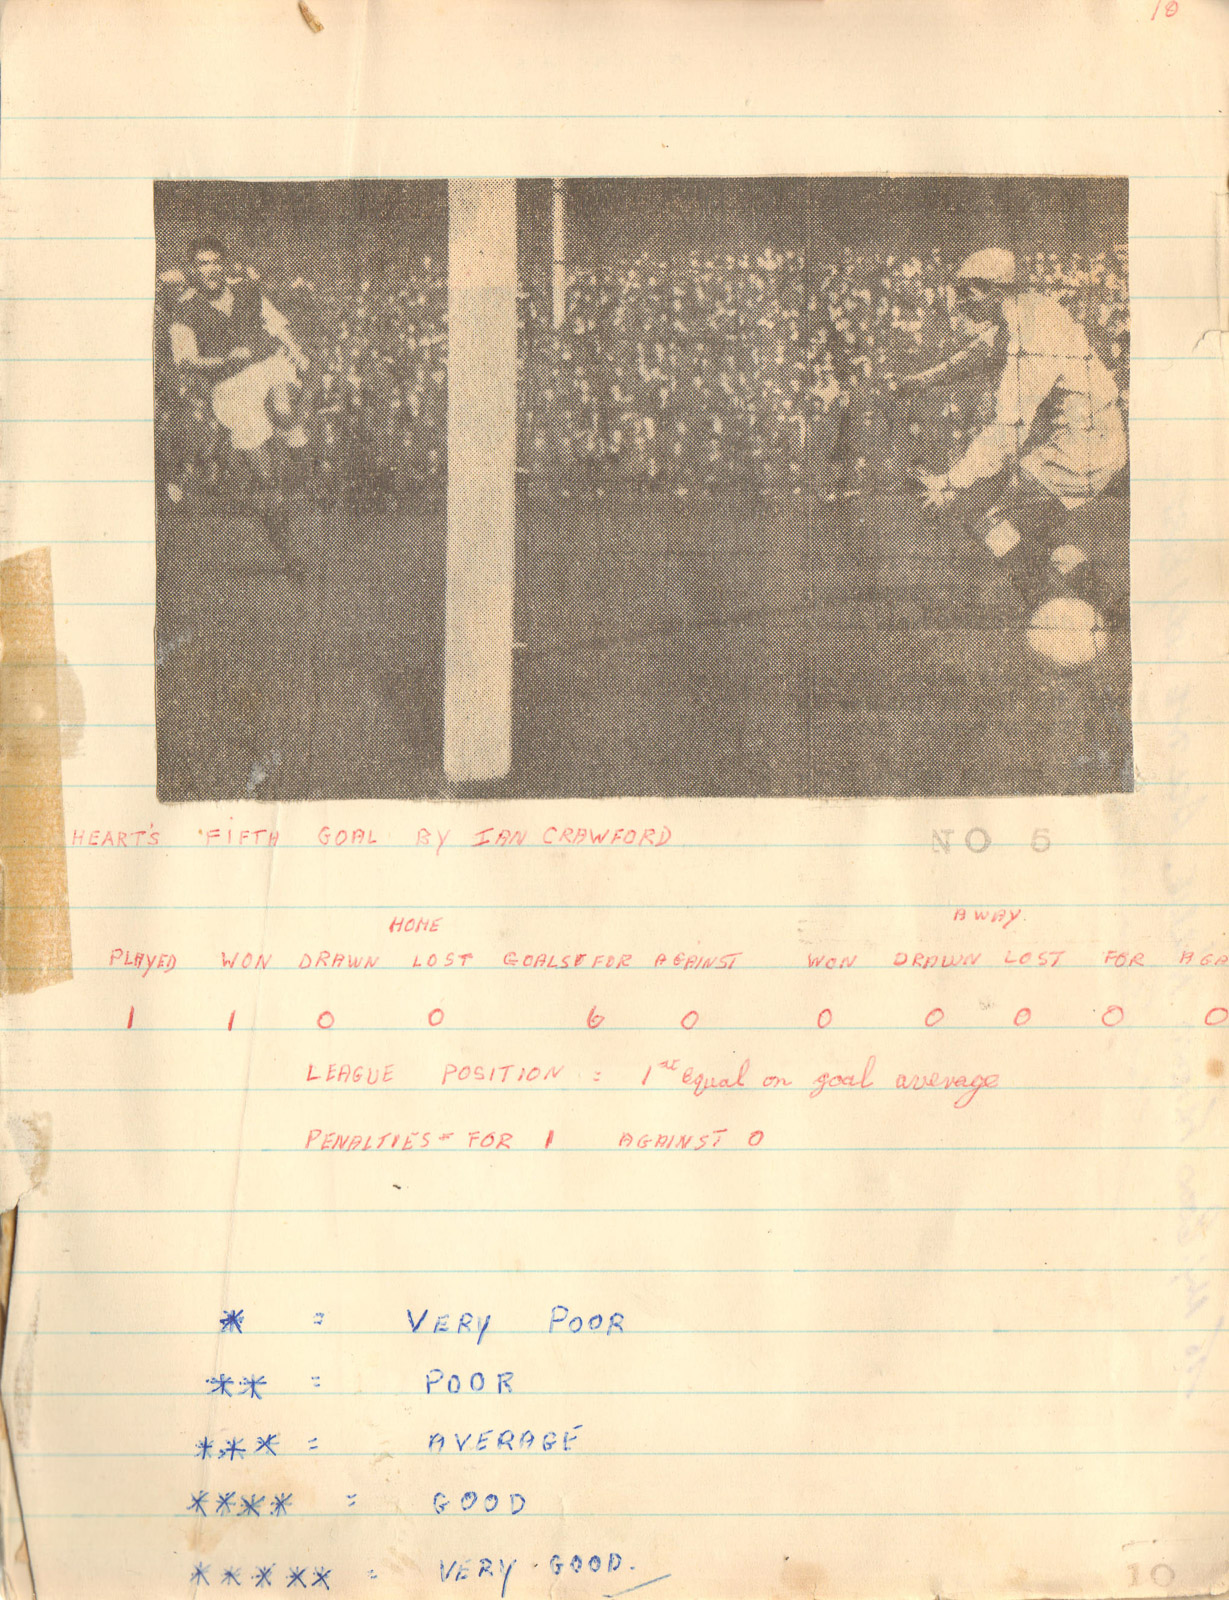 10
HEART'S FIFTH GOAL BY IAN CRAWFORD
NO 5
HOME AWAY.
PLAYED WON DRAWN LOST GOALS FOR AGAINST WON DRAWN LOST FOR AGA
1 1 0 0 6 0 0 0 0 0 0
LEAGUE POSITION = 1st equal on goal average
PENALTIES - FOR 1 AGAINST 0
* = VERY POOR
** = POOR
*** = AVERAGE
**** = GOOD
***** = VERY GOOD.
10